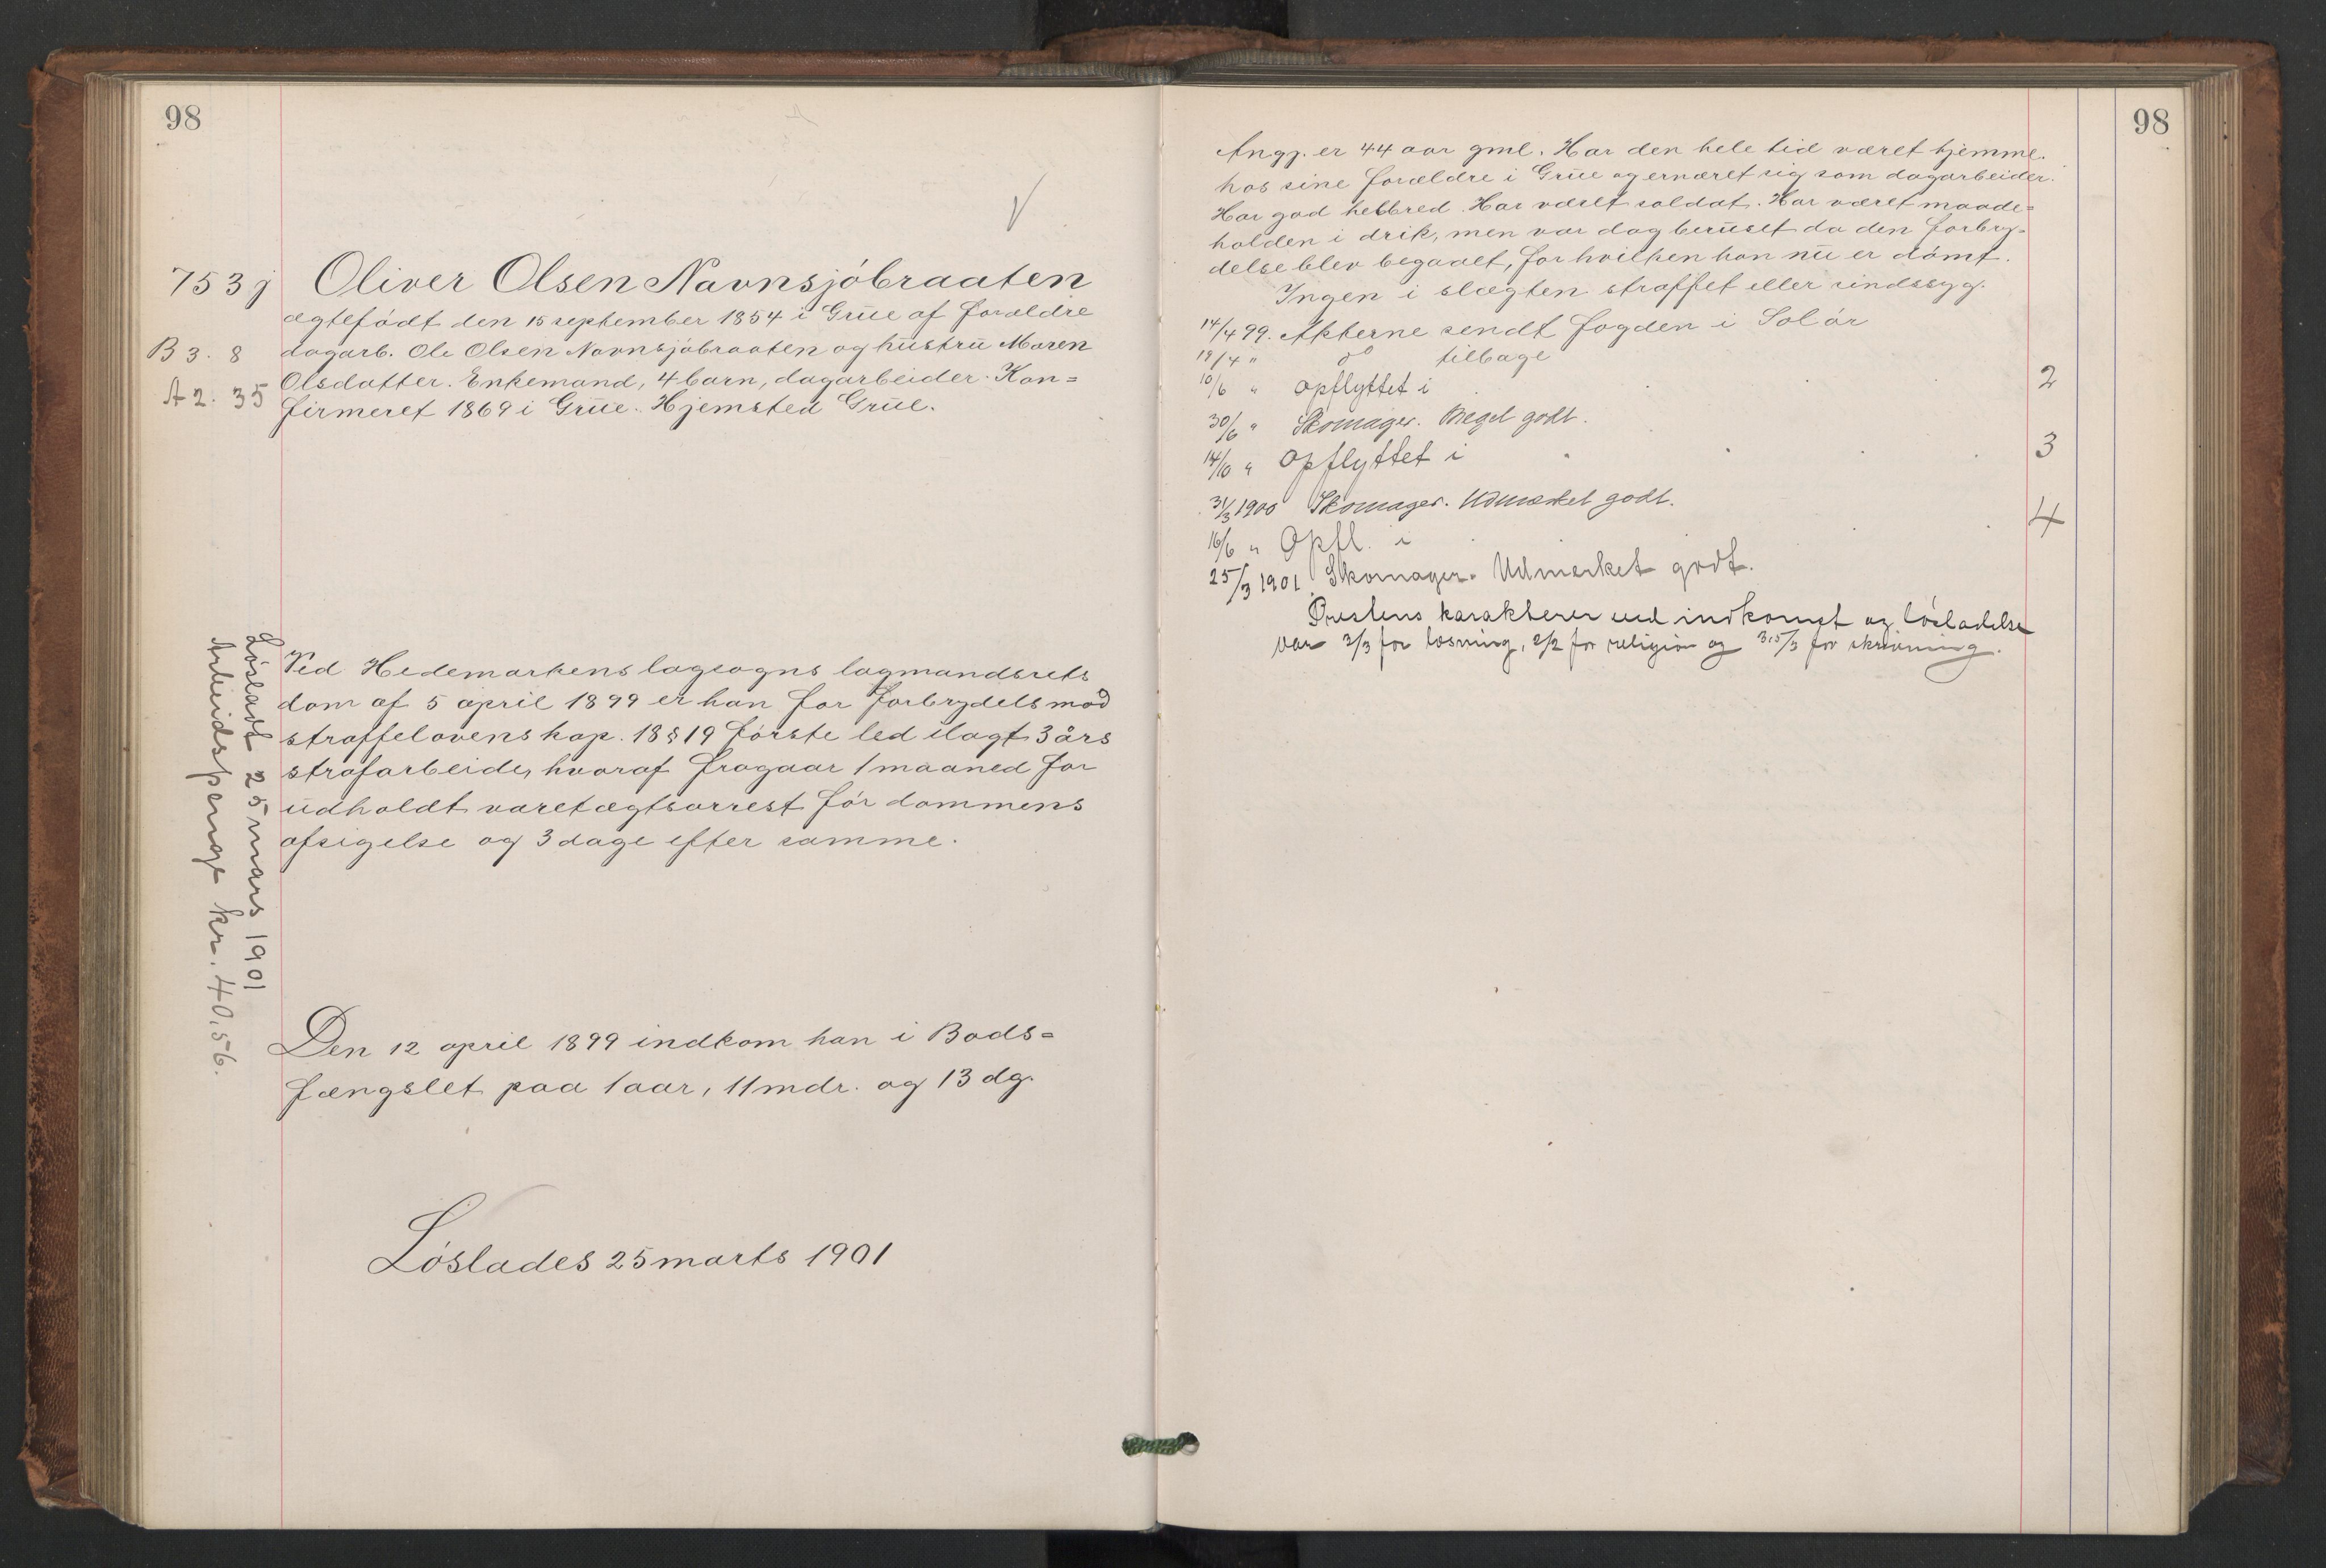 98
753j Oliver Olsen Navnsjöbraaten
ægtefödt den 15 september 1854 i Grue af forældre
B 3. 8 dagarb. Ole Olsen Navnsjöbraaten og hustru Maren
A 2. 35 Olsdatter. Enkemand, 4 barn, dagarbeider. Kon=
firmeret 1869 i Grue. Hjemsted Grue.
Ved Hedemarkens lagsogns lagmandsrets
dom af 5 april 1899 er han for forbrydels mod
straffelovens kap. 18 § 19 förste led ilagt 3 års
strafarbeide, hvoraf fragaar 1 maaned for
udholdt varetægtsarrest för dommens
afsigelse og 3 dage efter samme.
Lösladt 25 mars 1901
Arbeidspenge kr. 40.56.
Den 12 april 1899 indkom han i Bods=
fængslet paa 1 aar, 11 mdr. og 13 dg.
Löslades 25 marts 1901
98
Angj. er 44 aar gml. Har den hele tid været hjemme
hos sine forældre i Grue og ernæret sig som dagarbeider.
Har god helbred. Har været soldat. Har været maade=
holden i drik, men var dog beruset da den forbry=
delse blev begaaet, for hvilken han nu er dömt.
Ingen i slægten straffet eller sindssyg.
14/4 99. Akterne sendt fogden i Solör
19/4 " do tilbage
10/6 " opflyttet i 2
30/6 " Skomager. Meget godt.
14/10 " Opflyttet i 3
31/3 1900 Skomager. Udmerket godt.
16/6 " Opfl. i 4
25/3 1901. Skomager. Udmerket godt.
Prestens karakterer ved indkomst og lösladelse
var 3/3 for læsning, 2/2 for religion og 3,5/3 for skrivning.